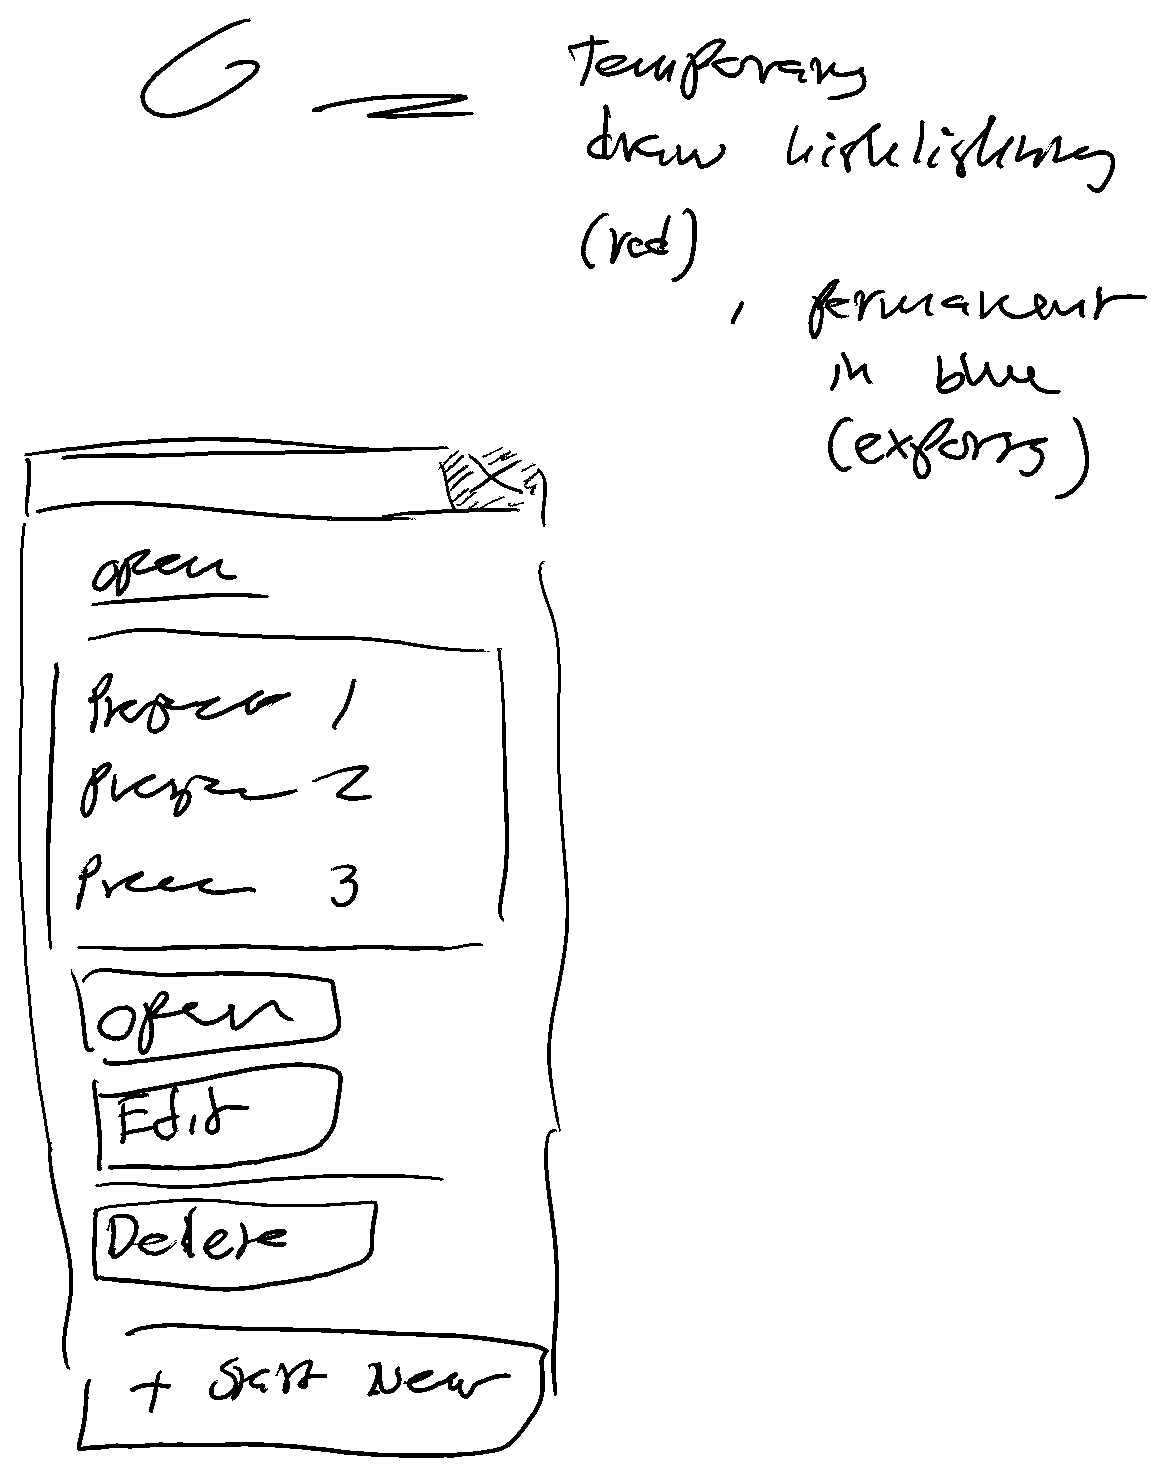 Temporary
draw highlighting
(red)
, permanent
in blue
(exports)
X
open
Project 1
Project 2
3
open
Edit
Delete
+ Start New